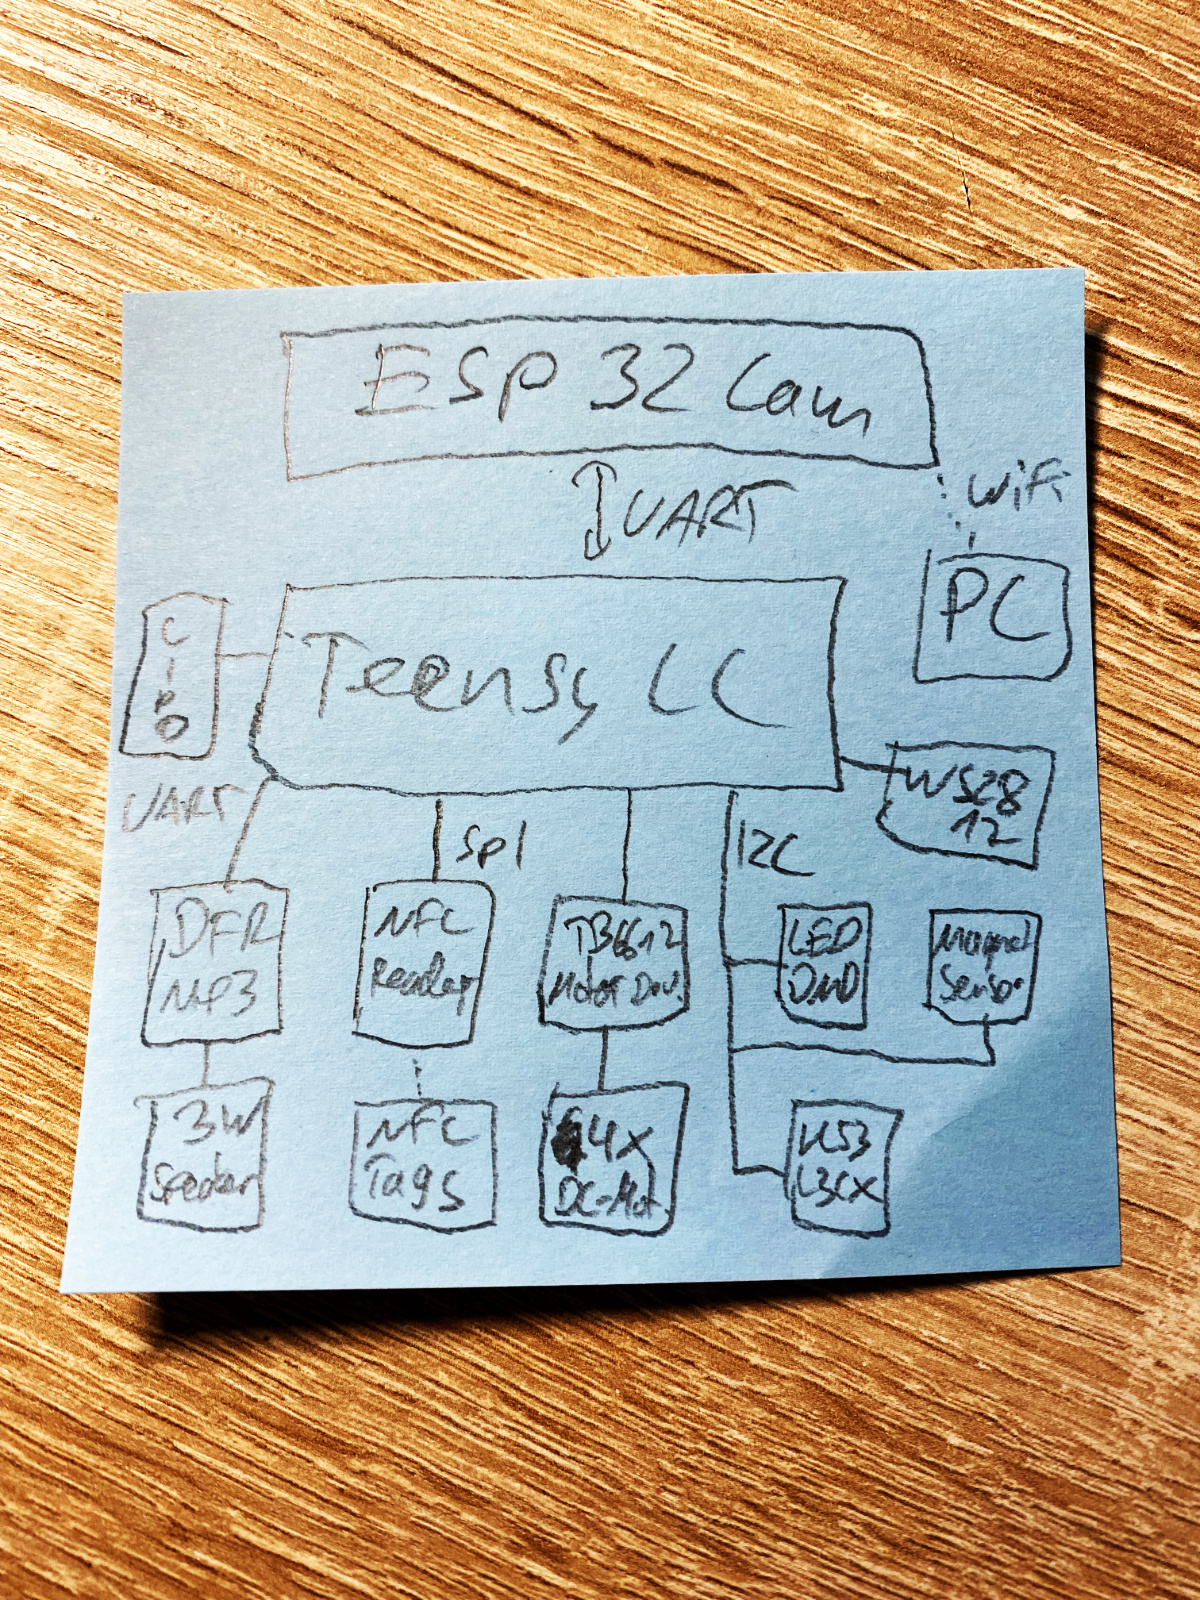 ESP 32 Cam
UART
WiFi
PC
Teensy LC
UART
WS28
12
SPI
I2C
DFR
MP3
NFC
Reader
TB6612
Motor Drv.
LED
Magnet
Sensor
3W
Speaker
NFC
Tags
4x
DC-Mot.
VL53
L3CX